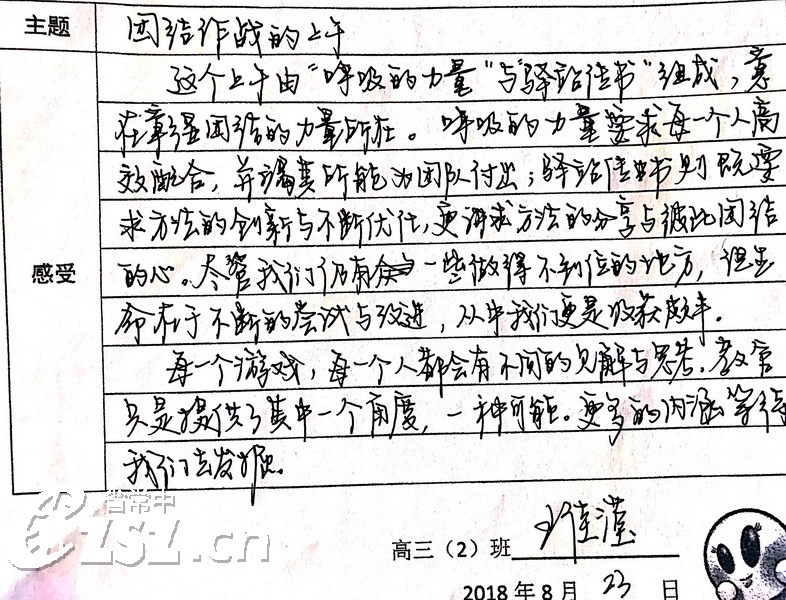 主题 团结作战的上午
这个上午由“呼吸的力量”与“驿站传书”组成，意
在彰显团结的力量所在。呼吸的力量要求每一个人高
效配合，并竭其所能为团队付出；驿站传书则既要
求方法的创新与不断优化，更讲求方法的分享与彼此团结
感受
的心。尽管我们仍有一些做得不到位的地方，但生
命在于不断的尝试与改进，从中我们更是收获颇丰。
每一个游戏，每一个人都会有不同的见解与思考，教官
只是提供了其中一个角度，一种可能。更多的内涵等待
我们去发掘。
省常中
CZSLZSL.cn
高三（2）班
2018年8月23日